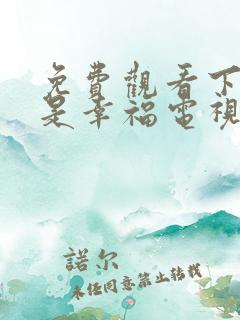 免費觀看下
是幸福電視
諾尔
未经同意禁止转载